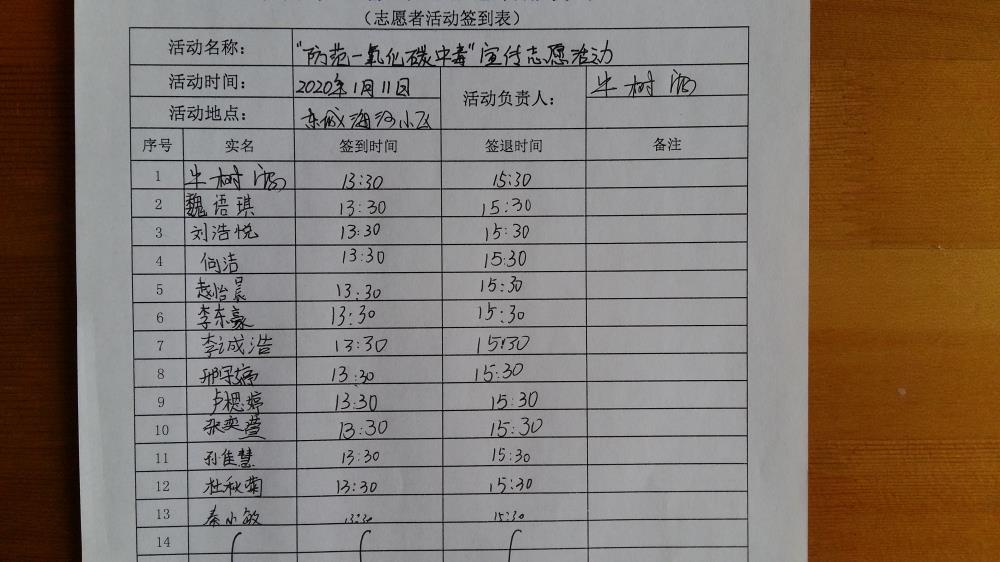 （志愿者活动签到表）
活动名称： "防范一氧化碳中毒"宣传志愿活动
活动时间： 2020年1月11日 活动负责人： 牛树
活动地点： 东城海河小区
序号 实名 签到时间 签退时间 备注
1 牛树 13:30 15:30
2 魏语琪 13:30 15:30
3 刘浩悦 13:30 15:30
4 何洁 13:30 15:30
5 赵怡晨 13:30 15:30
6 李东豪 13:30 15:30
7 李诚浩 13:30 15:30
8 邢 婷 13:30 15:30
9 卢 婷 13:30 15:30
10 张奕萱 13:30 15:30
11 孙佳慧 13:30 15:30
12 杜秋菊 13:30 15:30
13 秦小敏 13:30 15:30
14